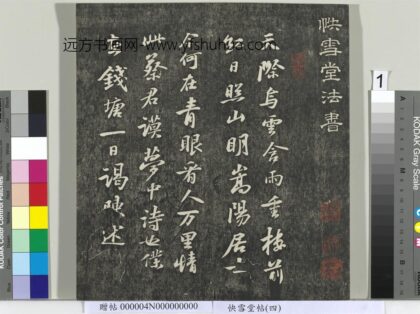 快雪堂法書
天際烏雲含雨重樓前
紅日照山明嵩陽居士
今何在青眼看人万里情
此蔡君謨夢中詩也僕
在錢塘一日謁陳述
远方书画网 www.yfshuhua.com
1
KODAK Gray Scale
贈帖 000004N000000000
快雪堂帖(四)